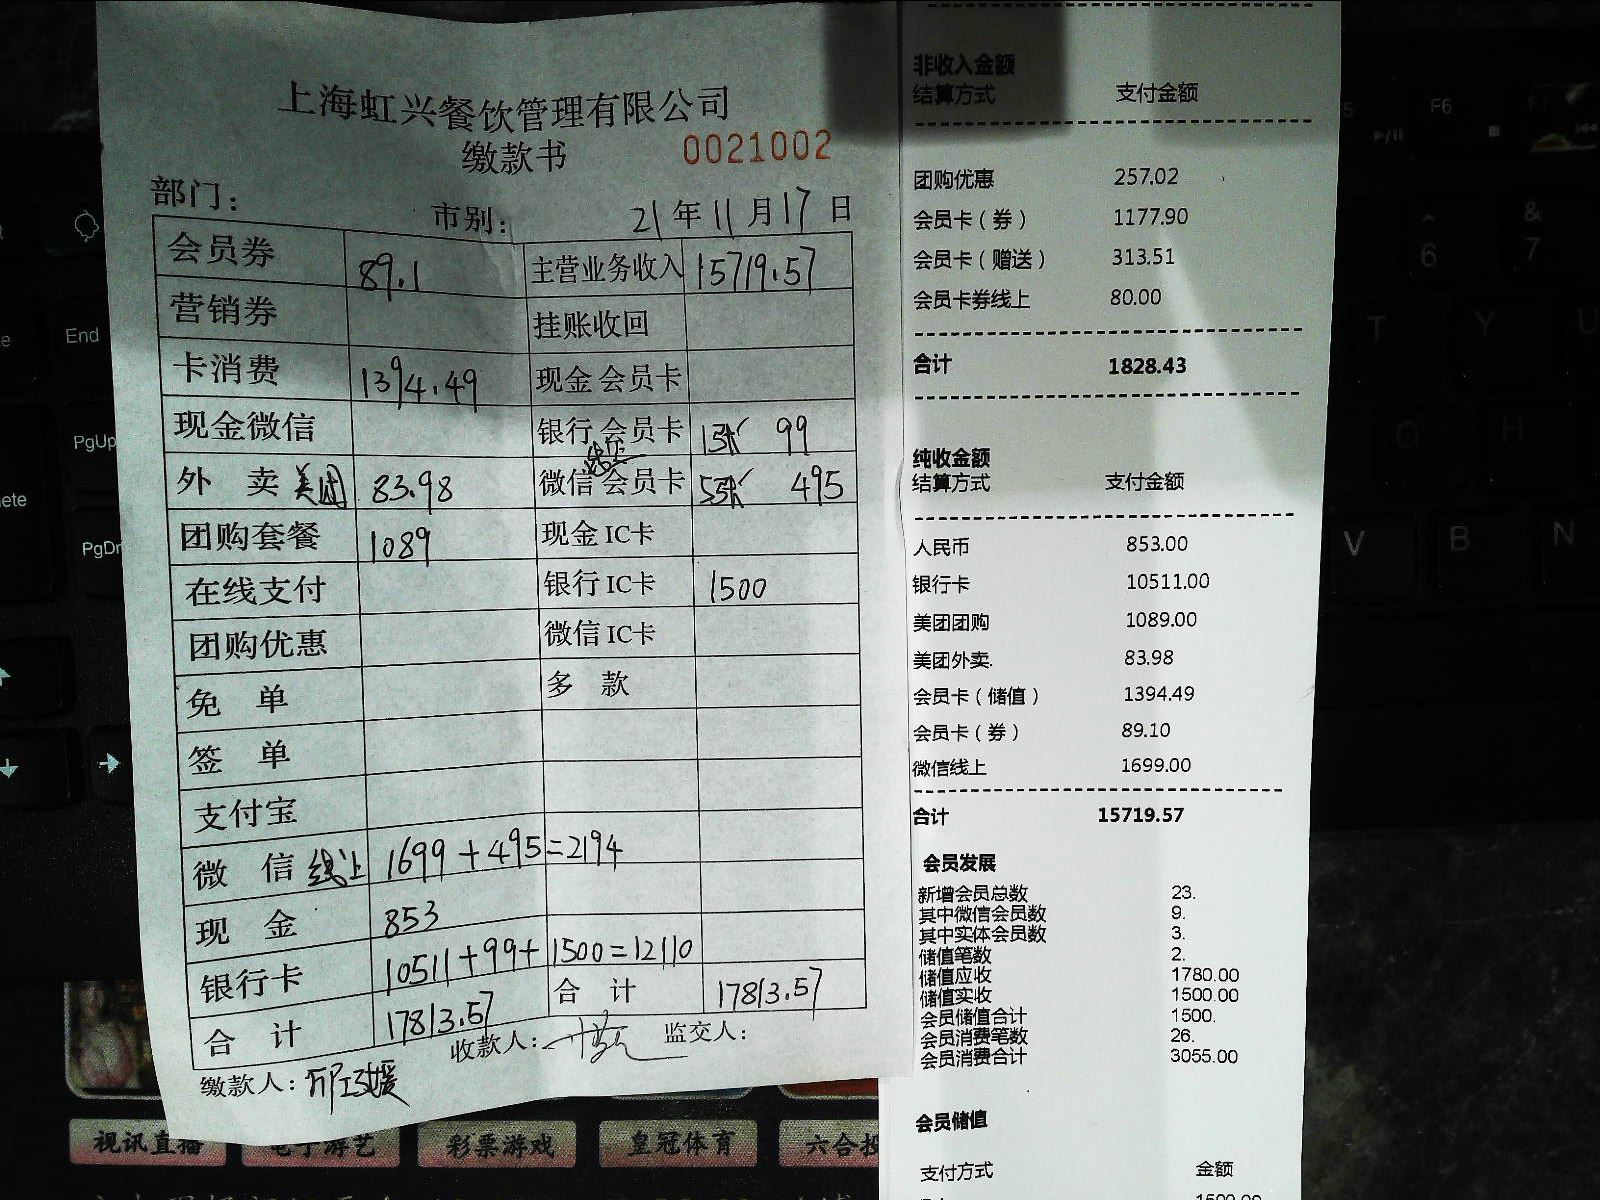 上海虹兴餐饮管理有限公司
缴款书 0021002
部门： 市别： 21年11月17日
会员券 89.1 主营业务收入 15719.57
营销券 挂账收回
卡消费 1394.49 现金 会员卡
现金微信 银行 会员卡 1张 99
外 卖 美团 83.98 微信 线上 会员卡 5张 495
团购套餐 1089 现金 IC卡
在线支付 银行 IC卡 1500
团购优惠 微信 IC卡
免 单 多 款
签 单
支付宝
微 信 线上 1699+495=2194
现 金 853
银行卡 10511+99+1500=12110
合 计 17813.57 合 计 17813.57
缴款人： 收款人： 监交人：
非收入金额
结算方式 支付金额
团购优惠 257.02
会员卡（券） 1177.90
会员卡（赠送） 313.51
会员卡券线上 80.00
合计 1828.43
纯收金额
结算方式 支付金额
人民币 853.00
银行卡 10511.00
美团团购 1089.00
美团外卖. 83.98
会员卡（储值） 1394.49
会员卡（券） 89.10
微信线上 1699.00
合计 15719.57
会员发展
新增会员总数 23.
其中微信会员数 9.
其中实体会员数 3.
储值笔数 2.
储值应收 1780.00
储值实收 1500.00
会员储值合计 1500.
会员消费笔数 26.
会员消费合计 3055.00
会员储值
支付方式 金额
1500.00
End
PgUp
PgDn
F6
&
6 7
T Y U
G H
V B N
视讯直播 电子游艺 彩票游戏 皇冠体育 六合